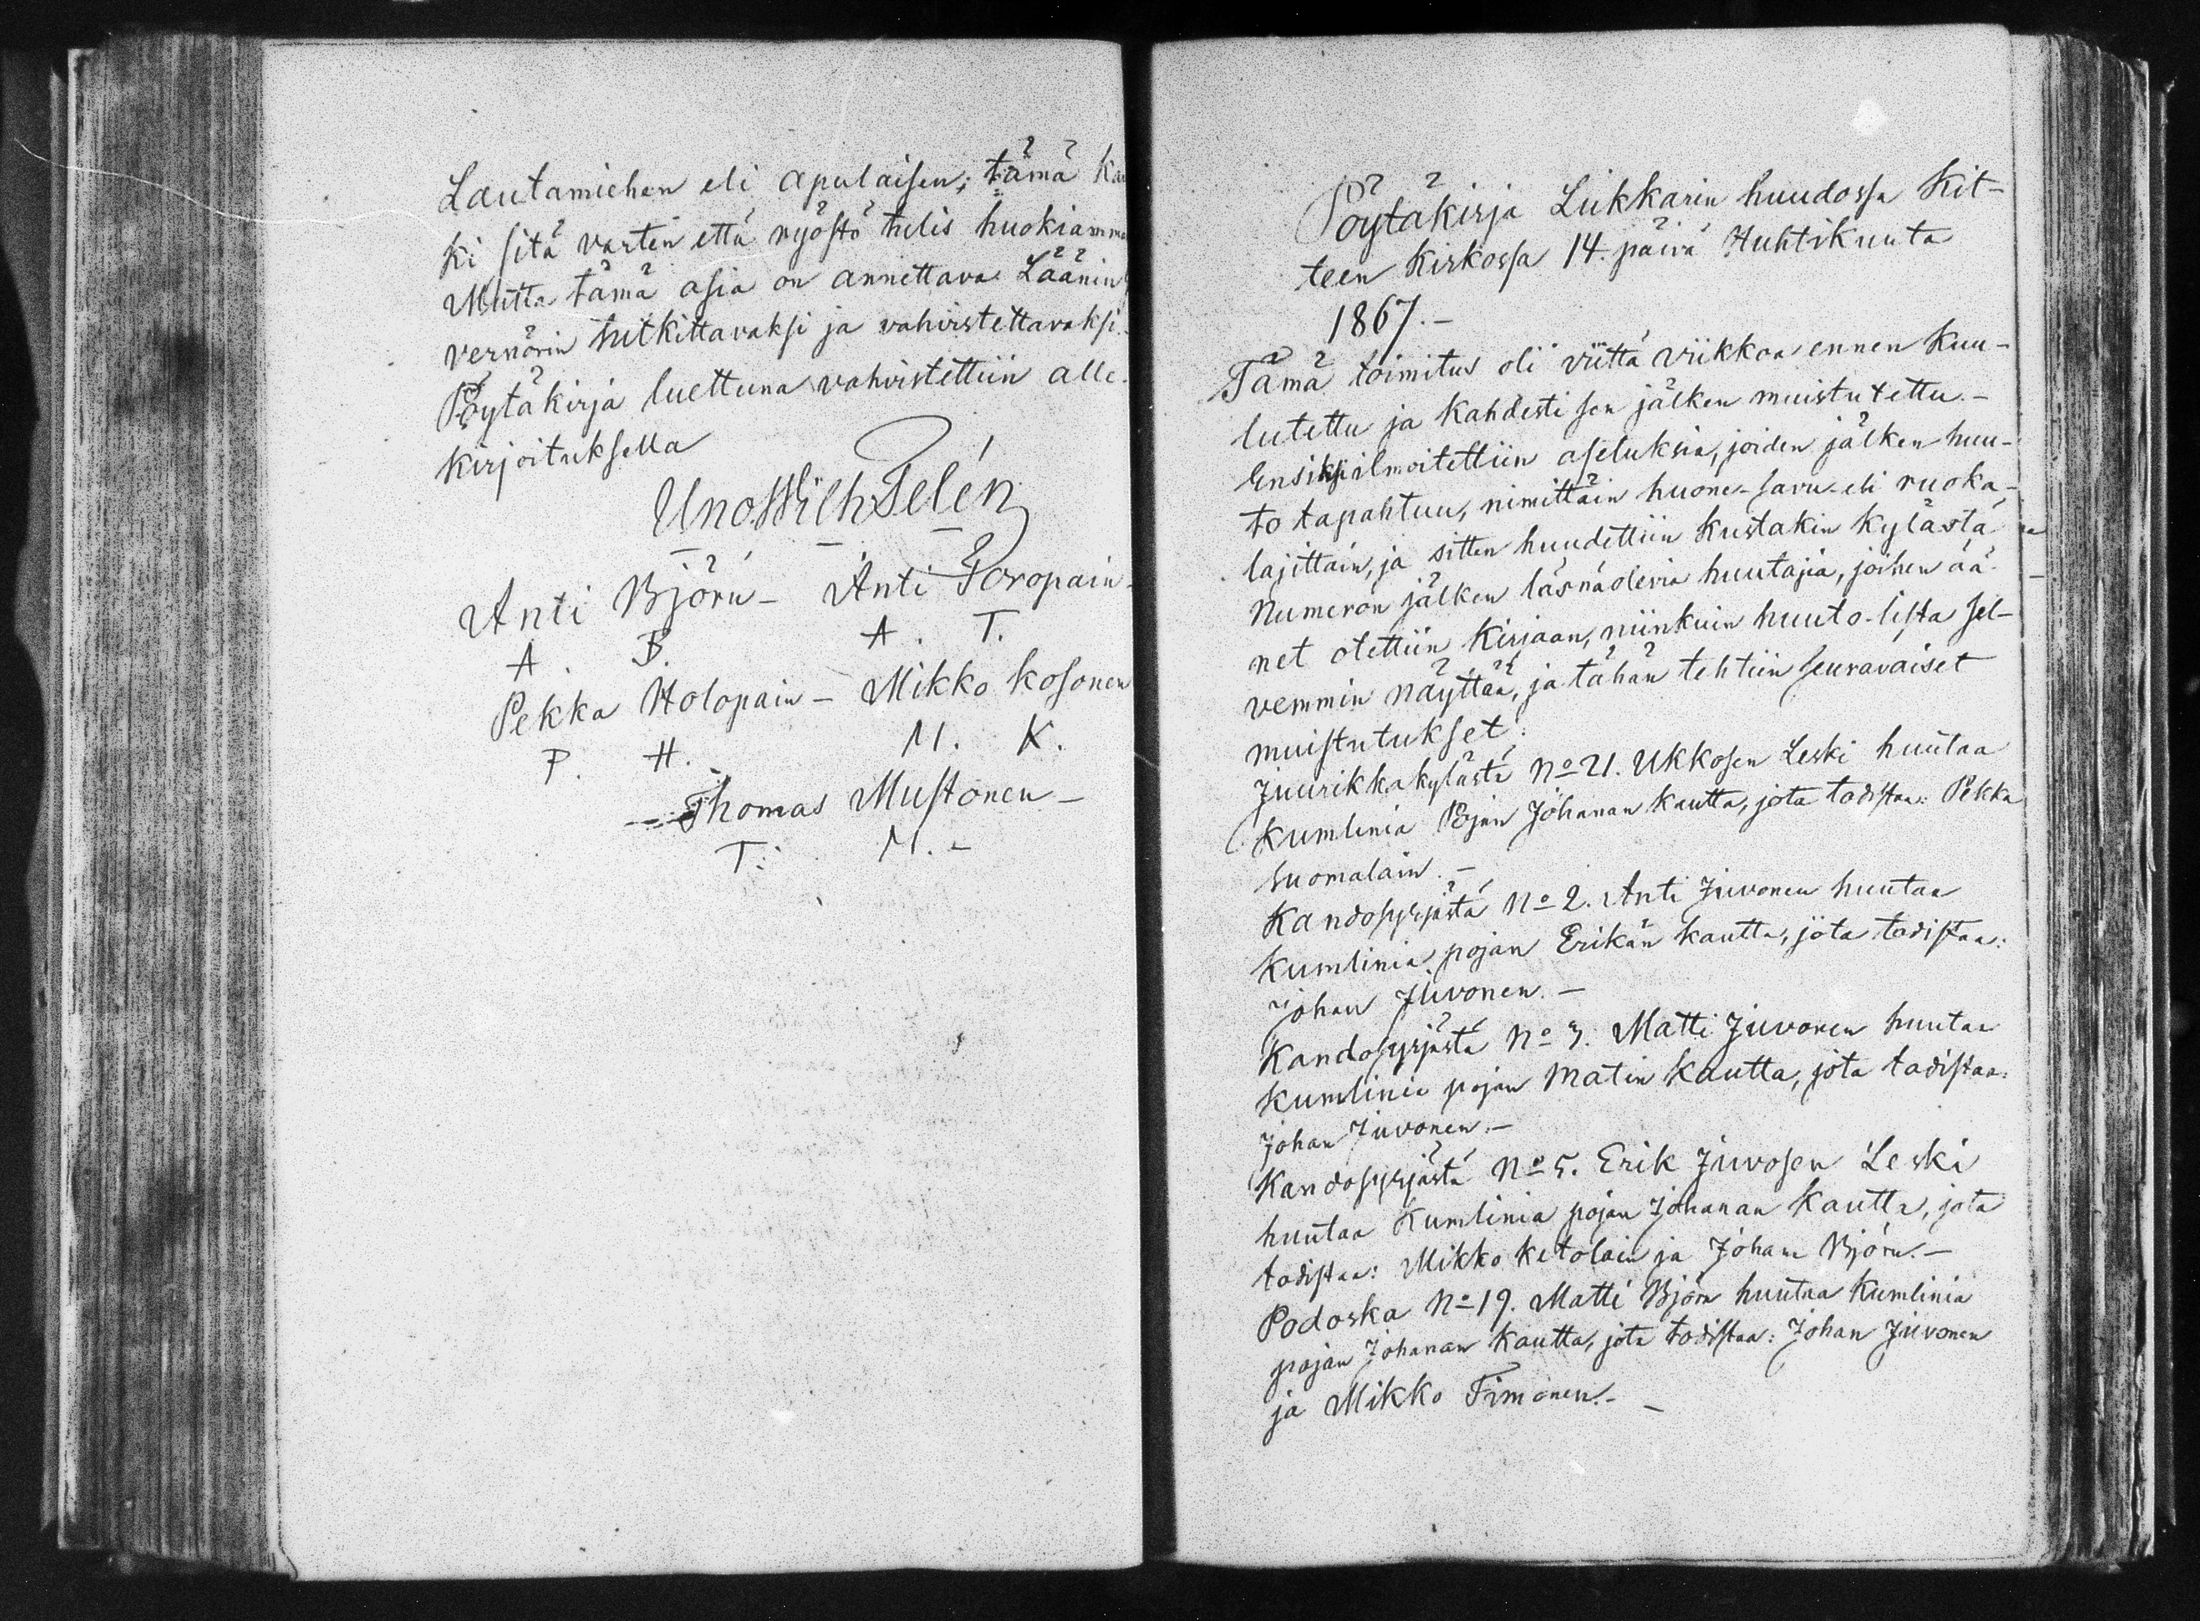 Lautamiehen eli apulaisen; tämä
ki sitä varten että ryöstö tulis huokiamma
Mutta tämä asia on annettava Läänin
vernörin tutkittavaksi ja vahvistettavaksi.
Pöytäkirja luettuna vahvistettiin alle-
kirjoituksella
Uno Wilh Telén
Anti Björn - Anti Toropain -
A. B. A. T.
Pekka Holopain - Mikko Kosonen
P. H. M. K.
Thomas Mustonen -
T. M. -
Pöytäkirja Lukkarin huudossa Kit-
teen Kirkossa 14. päivä Huhtikuuta
1867. -
Tämä toimitus oli viittä viikkoa ennen Kuu-
lutettu ja kahdesti sen jälken muistutettu. -
Ensiksi ilmoitettiin asetuksia, joiden jälken huu-
to tapahtuu, nimittäin huone- savu- eli ruoka-
lajittain, ja sitten huudettiin kustakin kylästä
Numeron jälken läsnäolevia huutajia, joihen ää-
net otettiin Kirjaan, niinkuin huuto-lista sel-
vemmin näyttää, ja tähän tehtiin seuravaiset
muistutukset:
Juurikkakylästä No 21. Ukkosen Leski huutaa
Kumlinia Pojan Johanan kautta, jota todistaa: Pekka
Suomalain. -
Kandosyrjästä No 2. Anti Juvonen huutaa
Kumlinia pojan Erikän kautta, jota todistaa:
Johan Juvonen. -
Kandosyrjästä No 3. Matti Juvonen huutaa
Kumlinia pojan Matin Kautta, jota todistaa:
Johan Juvonen. -
Kandosyrjästä No 5. Erik Juvosen Leski
huutaa Kumlinia pojan Johanan Kautta, jota
todistaa: Mikko Ketolain ja Johan Björn. -
Podoska No 19. Matti Björn huutaa Kumlinia
pojan Johanan Kautta, jota todistaa: Johan Juvonen
ja Mikko Timonen. -